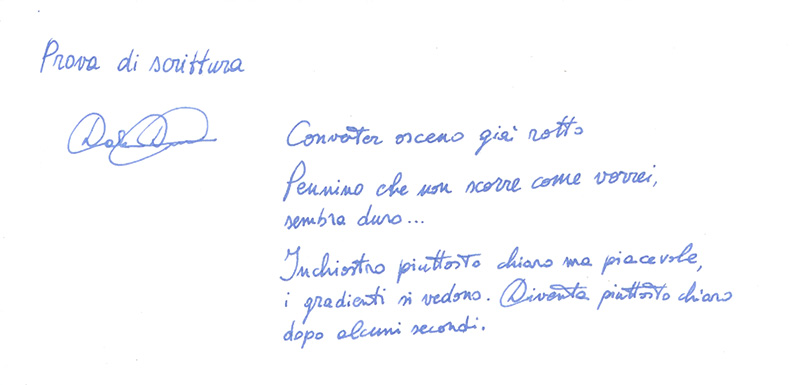 Prova di scrittura
Converter osceno già rotto
Pennino che non scorre come vorrei,
sembra duro...
Inchiostro piuttosto chiaro ma piacevole,
i gradienti si vedono. Diventa piuttosto chiaro
dopo alcuni secondi.